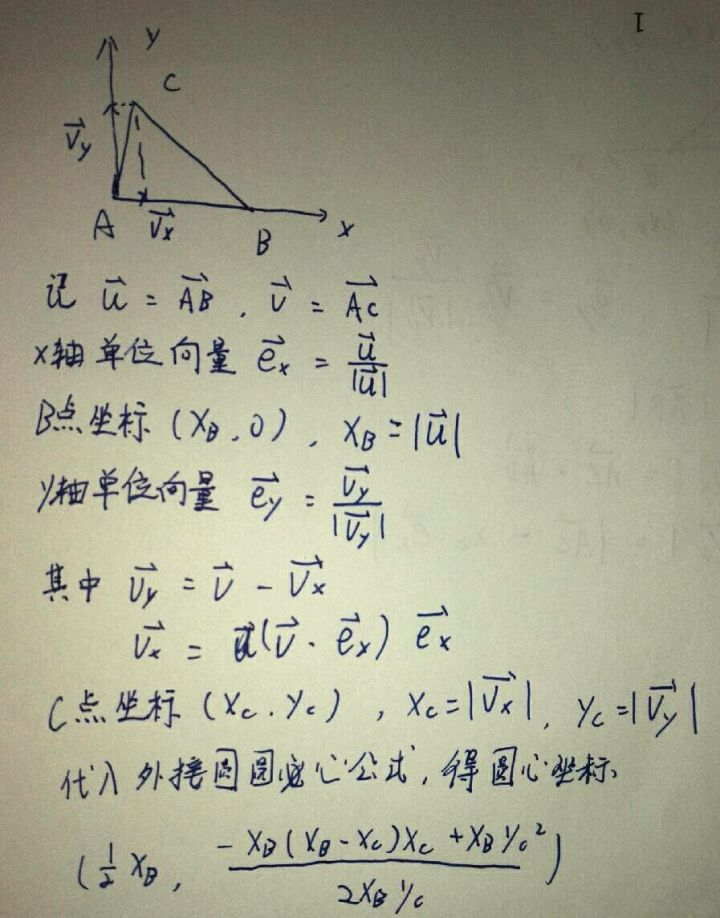 1
y
C
V⃗y
A
V⃗x
B
x
记 u⃗ = AB⃗ , v⃗ = AC⃗
x轴单位向量 e⃗x = u⃗/|u⃗|
B点坐标 (XB, 0), XB = |u⃗|
y轴单位向量 e⃗y = V⃗y/|V⃗y|
其中 V⃗y = V⃗ - V⃗x
V⃗x = (V⃗ · e⃗x) e⃗x
C点坐标 (Xc, Yc), Xc = |V⃗x|, Yc = |V⃗y|
代入外接圆圆心公式, 得圆心坐标
(½ XB, (-XB(XB - Xc)Xc + XB Yc²)/(2XB Yc))